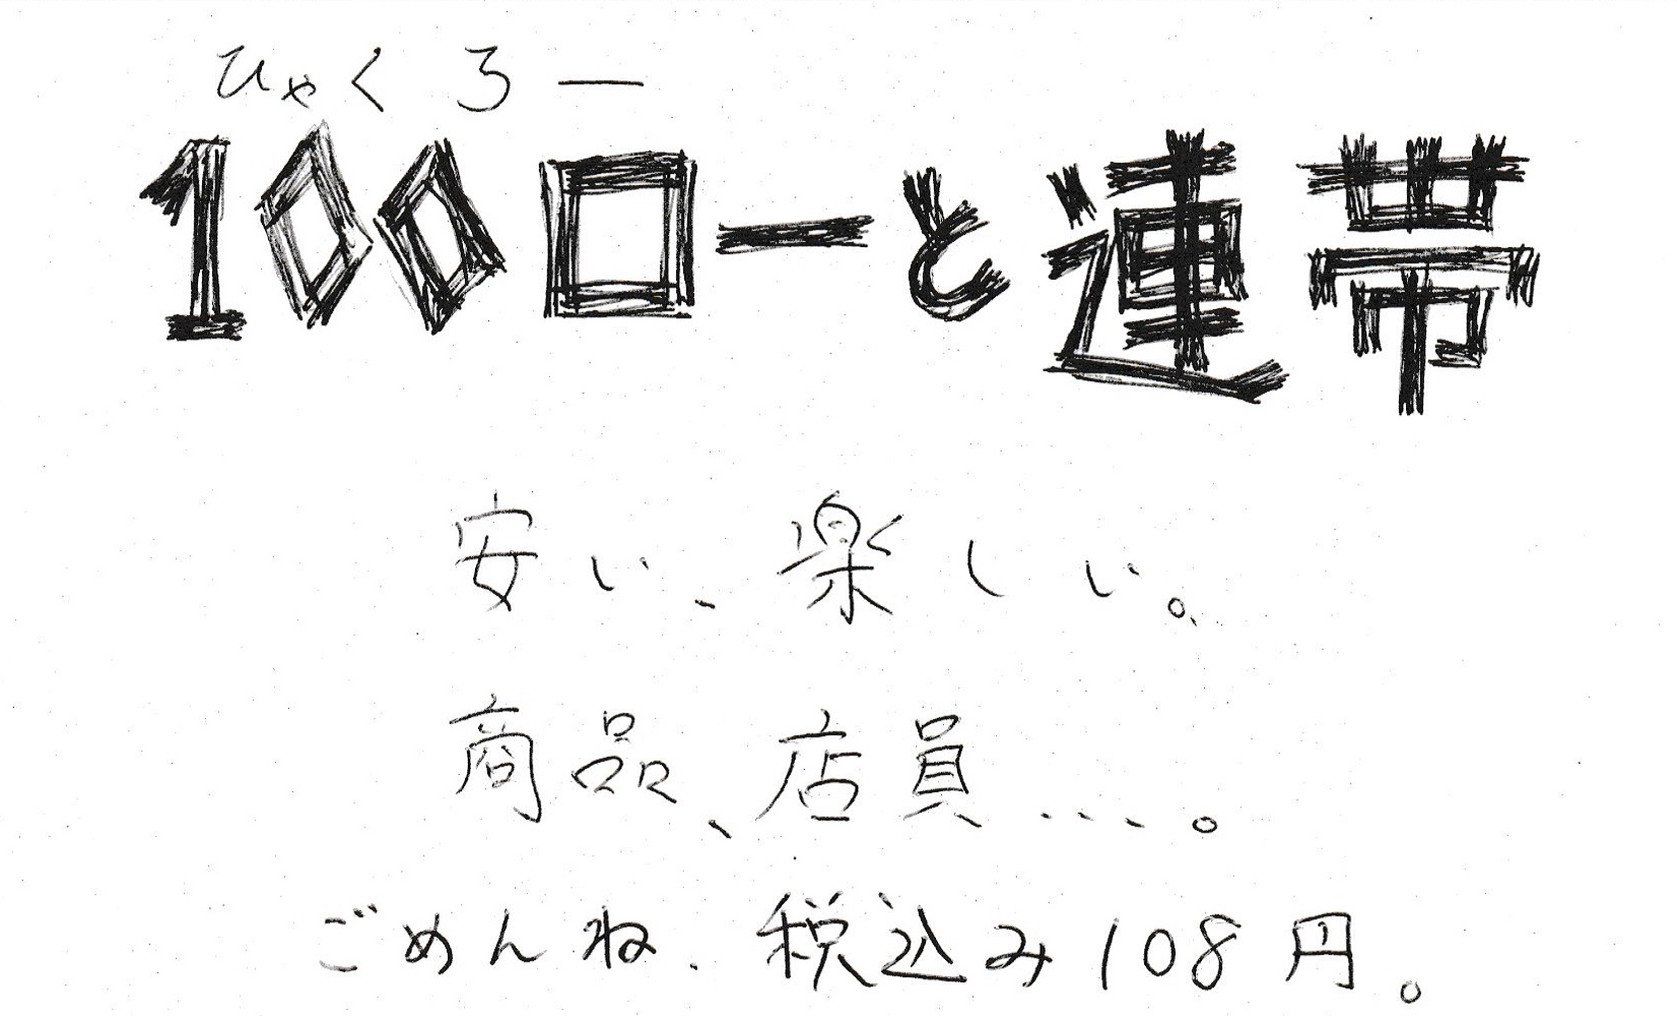 ひゃくろー
100ローと連帯
安い、楽しい。
商品、店員…。
ごめんね、税込み108円。